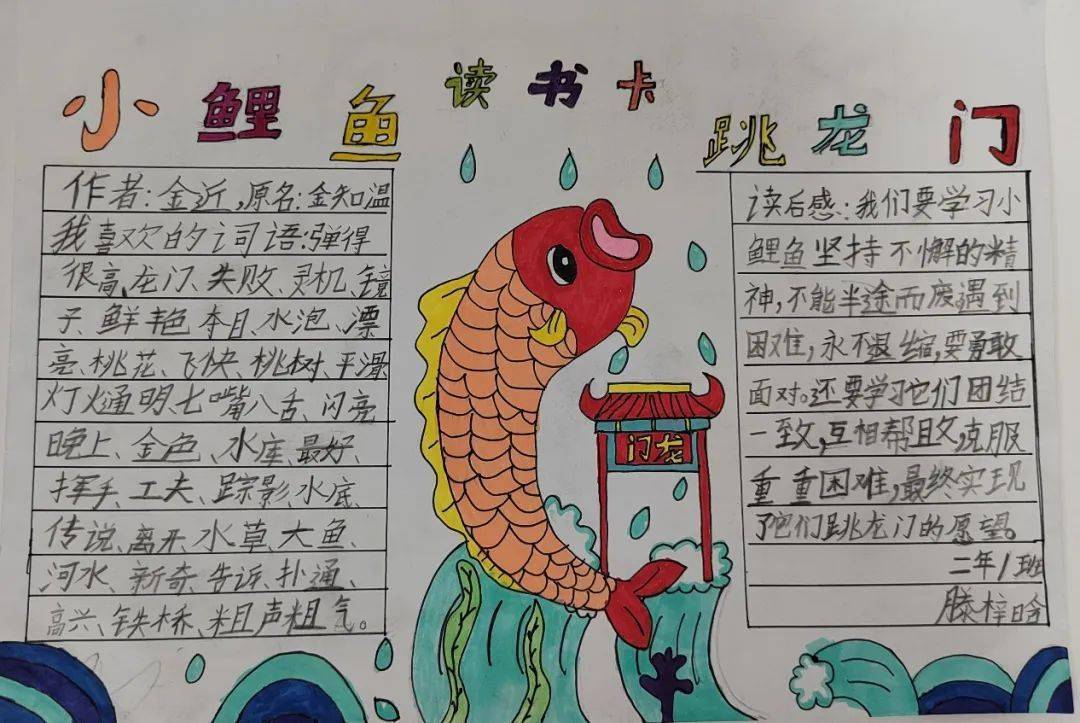 读书卡
小鲤鱼跳龙门
作者:金近,原名:金知温
我喜欢的词语:弹得
很高、龙门、失败、灵机、镜
子、鲜艳、夺目、水泡、漂
亮、桃花、飞快、桃树、平滑
灯火通明、七嘴八舌、闪亮
晚上、金色、水库、最好、
挥手、工夫、踪影、水底、
传说、离开、水草、大鱼、
河水、新奇、告诉、扑通、
高兴、铁桥、粗声粗气。
门龙
读后感:我们要学习小
鲤鱼坚持不懈的精
神,不能半途而废,遇到
困难,永不退缩,要勇敢
面对。还要学习它们团结
一致,互相帮助,克服
重重困难,最终实现
了它们跳龙门的愿望。
二年1班
滕梓晗